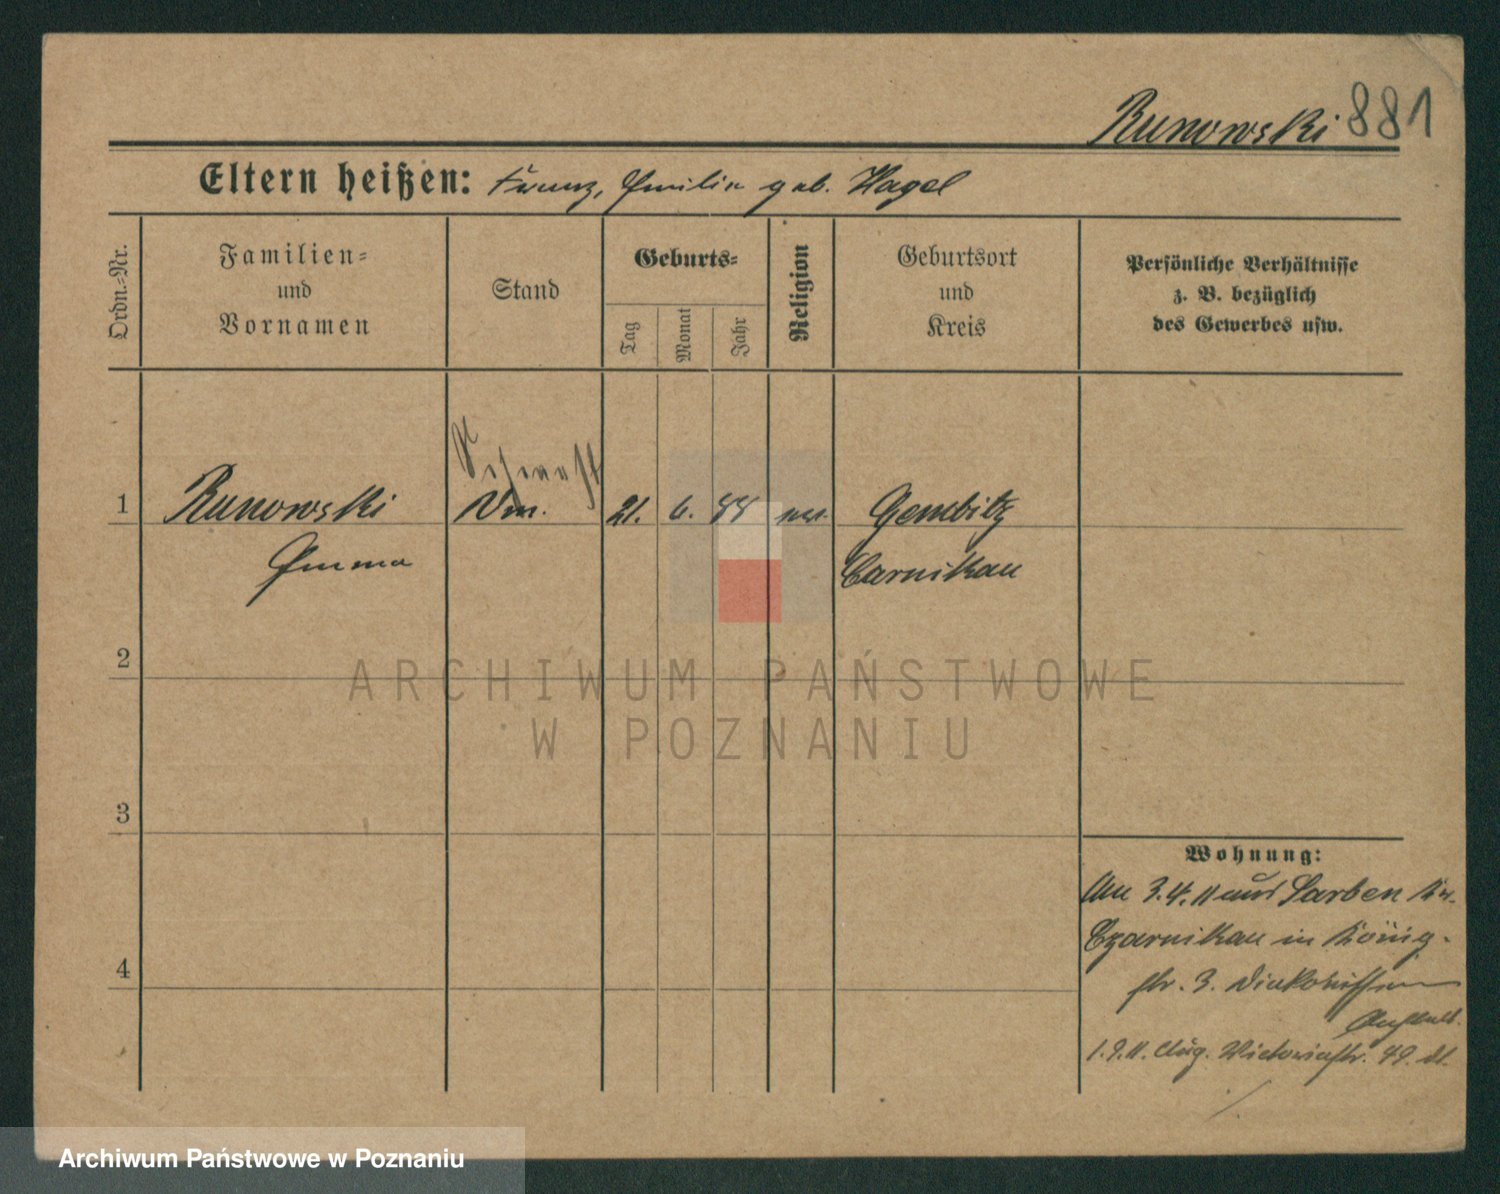 Runowski 881
Eltern heißen: Franz, Emilie geb. Nagel
Ordn.-Nr.
Familien-
und
Vornamen
Stand
Geburts-
Tag
Monat
Jahr
Religion
Geburtsort
und
Kreis
Persönliche Verhältnisse
z. B. bezüglich
des Gewerbes usw.
1
Runowski
21. 6. 88
Gembitz
Emma
Czarnikau
2
ARCHIWUM PAŃSTWOWE
W POZNANIU
3
Wohnung:
Am 3.4.11 aus Sarben Kr.
Czarnikau in König-
4
str. 3. Diakonissen
1.9.11. Aug. Victoriastr. 49.
Archiwum Państwowe w Poznaniu